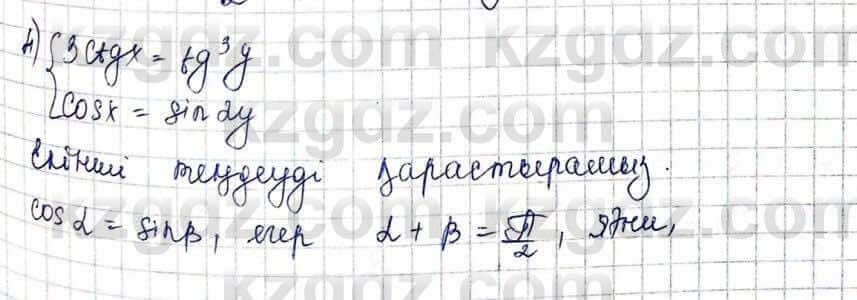 4) { 3ctgx = tg³y
cosx = sin2y
Екінші теңдеуді қарастырамыз.
cos α = sinβ, егер α + β = π/2, яғни,
kzgdz.com kzgdz.com
kzgdz.com
kzgdz.com kzgdz.com
kzgdz.com